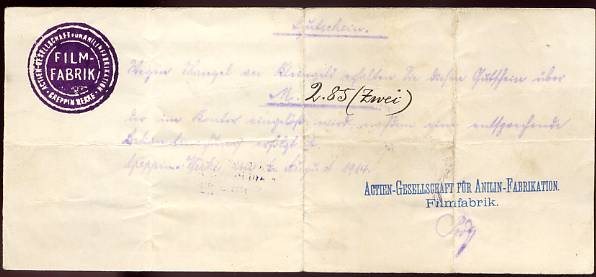 ACTIEN-GESELLSCHAFT FÜR ANILIN-FABRIKATION
FILM-
FABRIK
GREPPIN WERKE
Gutschein.
Wegen Mangel an Kleingeld erhalten Sie diesen Gutschein über
M. 2.85 (Zwei)
der im Kontor eingelöst wird, nachdem eine entsprechende
Greppin-Werke August 1914.
ACTIEN-GESELLSCHAFT FÜR ANILIN-FABRIKATION.
Filmfabrik.